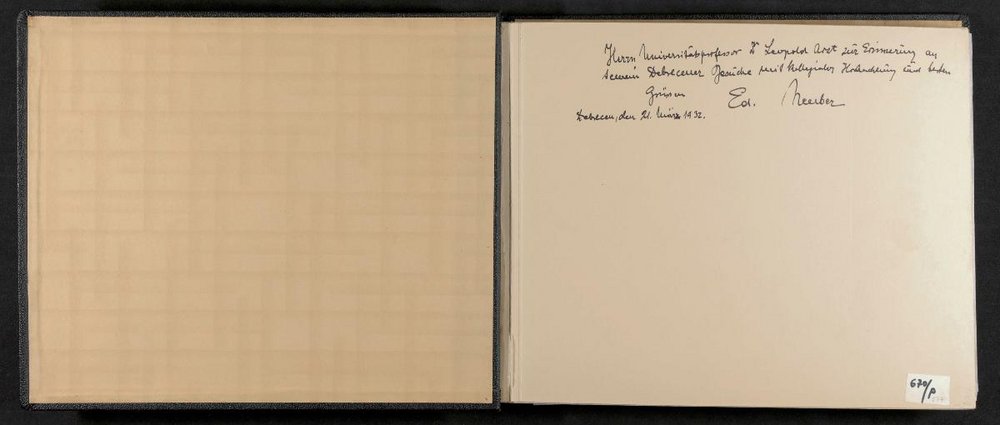 Herrn Universitätsprofessor Dr Leopold Arzt zur Erinnerung an
seinen Debrecener Besuche mit kollegialer Hochachtung und besten
Grüssen Ed. Neuber
Debrecen, den 21. März 1932.
670/P